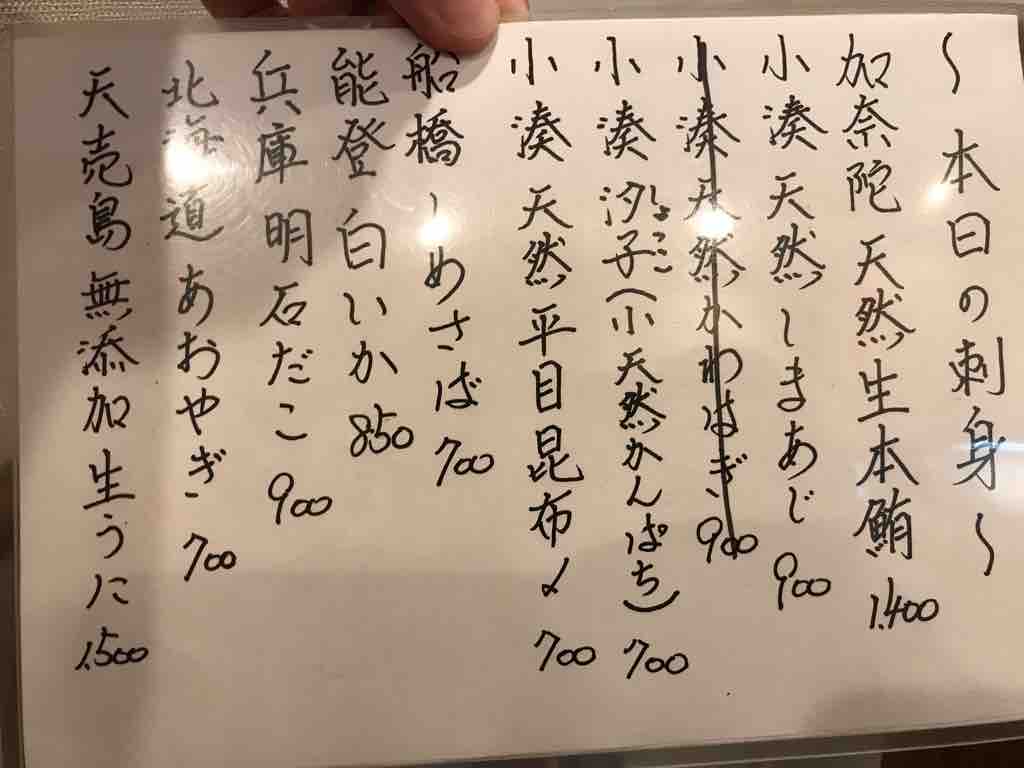 ～本日の刺身～
加奈陀 天然生本鮪 1.400
小湊 天然しまあじ 900
小湊 天然かわはぎ 900
小湊 汐子(小天然かんぱち) 700
しょこ
小湊 天然平目昆布〆 700
船橋 しめさば 700
能登 白いか 850
兵庫 明石だこ 900
北海道 あおやぎ 700
天売島 無添加生うに 1.500